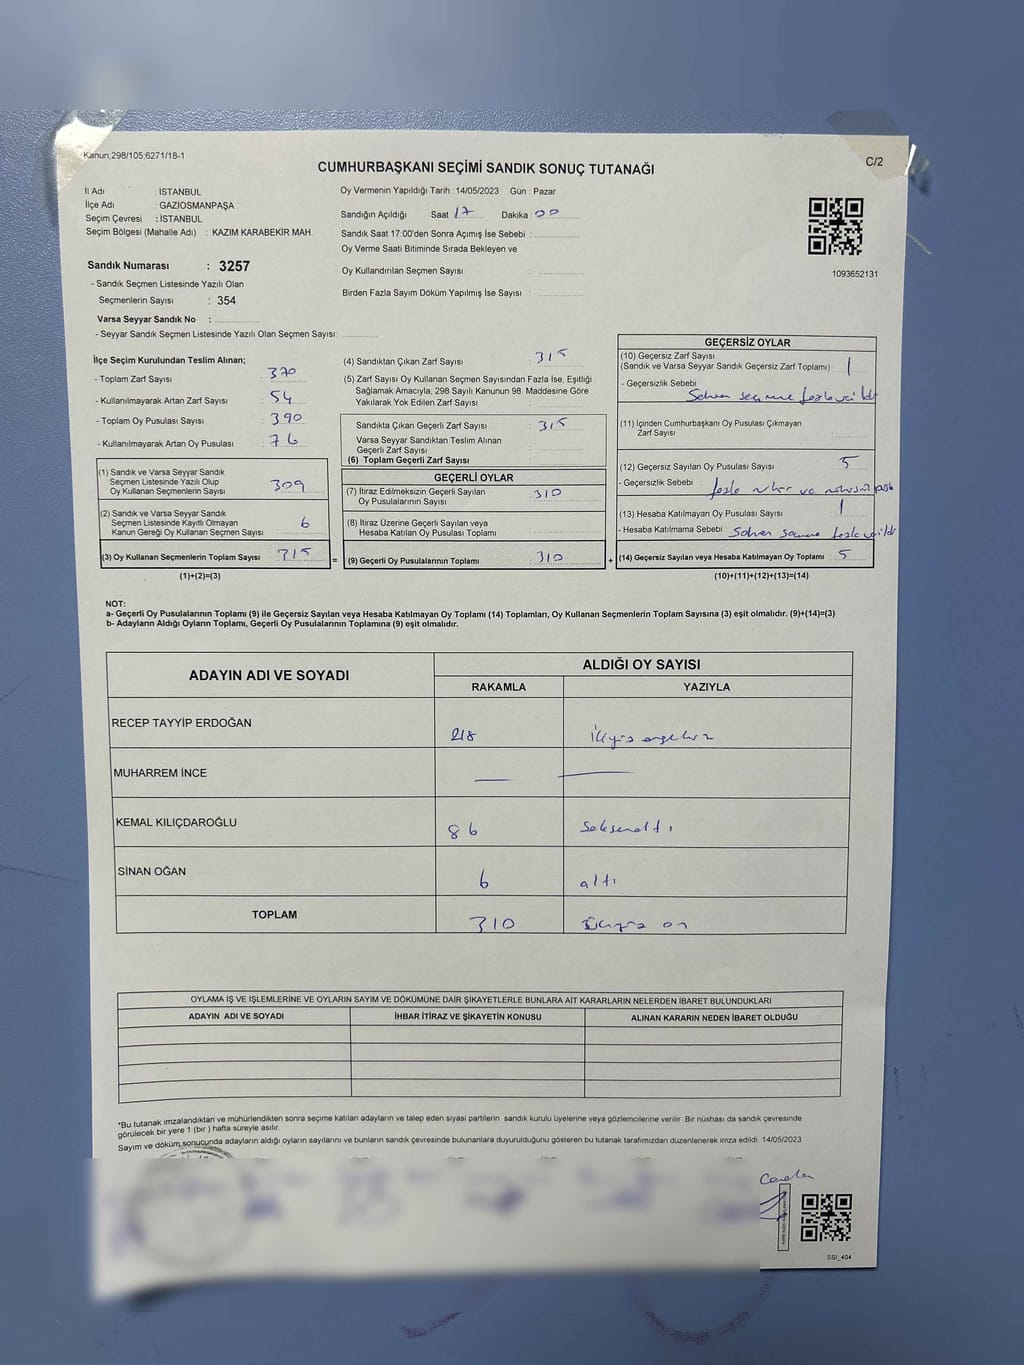 Kanun;298/105;6271/18-1
C/2
CUMHURBAŞKANI SEÇİMİ SANDIK SONUÇ TUTANAĞI
İl Adı : İSTANBUL
İlçe Adı : GAZİOSMANPAŞA
Seçim Çevresi : İSTANBUL
Seçim Bölgesi (Mahalle Adı) : KAZIM KARABEKİR MAH.
Sandık Numarası : 3257
- Sandık Seçmen Listesinde Yazılı Olan
Seçmenlerin Sayısı : 354
Varsa Seyyar Sandık No :
- Seyyar Sandık Seçmen Listesinde Yazılı Olan Seçmen Sayısı:
Oy Vermenin Yapıldığı Tarih : 14/05/2023 Gün : Pazar
Sandığın Açıldığı Saat 17 Dakika : 00
Sandık Saat 17:00'den Sonra Açımış İse Sebebi :
Oy Verme Saati Bitiminde Sırada Bekleyen ve
Oy Kullandırılan Seçmen Sayısı :
Birden Fazla Sayım Döküm Yapılmış İse Sayısı :
1093652131
İlçe Seçim Kurulundan Teslim Alınan;
- Toplam Zarf Sayısı : 370
- Kullanılmayarak Artan Zarf Sayısı : 54
- Toplam Oy Pusulası Sayısı : 390
- Kullanılmayarak Artan Oy Pusulası : 76
(1) Sandık ve Varsa Seyyar Sandık
Seçmen Listesinde Yazılı Olup
Oy Kullanan Seçmenlerin Sayısı : 309
(2) Sandık ve Varsa Seyyar Sandık
Seçmen Listesinde Kayıtlı Olmayan
Kanun Gereği Oy Kullanan Seçmen Sayısı : 6
(3) Oy Kullanan Seçmenlerin Toplam Sayısı : 315 =
(1)+(2)=(3)
(4) Sandıktan Çıkan Zarf Sayısı : 315
(5) Zarf Sayısı Oy Kullanan Seçmen Sayısından Fazla İse, Eşitliği
Sağlamak Amacıyla; 298 Sayılı Kanunun 98. Maddesine Göre
Yakılarak Yok Edilen Zarf Sayısı :
Sandıkta Çıkan Geçerli Zarf Sayısı : 315
Varsa Seyyar Sandıktan Teslim Alınan
Geçerli Zarf Sayısı :
(6) Toplam Geçerli Zarf Sayısı
GEÇERLİ OYLAR
(7) İtiraz Edilmeksizin Geçerli Sayılan
Oy Pusulalarının Sayısı : 310
(8) İtiraz Üzerine Geçerli Sayılan veya
Hesaba Katılan Oy Pusulası Toplamı :
(9) Geçerli Oy Pusulalarının Toplamı : 310 +
GEÇERSİZ OYLAR
(10) Geçersiz Zarf Sayısı
(Sandık ve Varsa Seyyar Sandık Geçersiz Zarf Toplamı) : 1
- Geçersizlik Sebebi :
(11) İçinden Cumhurbaşkanı Oy Pusulası Çıkmayan
Zarf Sayısı :
(12) Geçersiz Sayılan Oy Pusulası Sayısı : 5
- Geçersizlik Sebebi : fazla mühür ve mühürsüz
(13) Hesaba Katılmayan Oy Pusulası Sayısı : 1
- Hesaba Katılmama Sebebi :
(14) Geçersiz Sayılan veya Hesaba Katılmayan Oy Toplamı : 5
(10)+(11)+(12)+(13)=(14)
NOT:
a- Geçerli Oy Pusulalarının Toplamı (9) ile Geçersiz Sayılan veya Hesaba Katılmayan Oy Toplamı (14) Toplamları, Oy Kullanan Seçmenlerin Toplam Sayısına (3) eşit olmalıdır. (9)+(14)=(3)
b- Adayların Aldığı Oyların Toplamı, Geçerli Oy Pusulalarının Toplamına (9) eşit olmalıdır.
ADAYIN ADI VE SOYADI
ALDIĞI OY SAYISI
RAKAMLA YAZIYLA
RECEP TAYYİP ERDOĞAN 218
MUHARREM İNCE —
KEMAL KILIÇDAROĞLU 86 Seksenaltı
SİNAN OĞAN 6 altı
TOPLAM 310 Üçyüz on
OYLAMA İŞ VE İŞLEMLERİNE VE OYLARIN SAYIM VE DÖKÜMÜNE DAİR ŞİKAYETLERLE BUNLARA AİT KARARLARIN NELERDEN İBARET BULUNDUKLARI
ADAYIN ADI VE SOYADI İHBAR İTİRAZ VE ŞİKAYETİN KONUSU ALINAN KARARIN NEDEN İBARET OLDUĞU
*Bu tutanak imzalandıktan ve mühürlendikten sonra seçime katılan adayların ve talep eden siyasi partilerin sandık kurulu üyelerine veya gözlemcilerine verilir. Bir nüshası da sandık çevresinde
görülecek bir yere 1 (bir) hafta süreyle asılır.
Sayım ve döküm sonucunda adayların aldığı oyların sayılarını ve bunların sandık çevresinde bulunanlara duyurulduğunu gösteren bu tutanak tarafımızdan düzenlenerek imza edildi. 14/05/2023
SSI_404